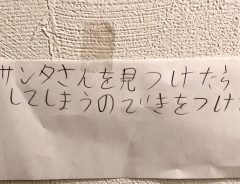 サンタさんを見つけたら
してしまうのできをつけ